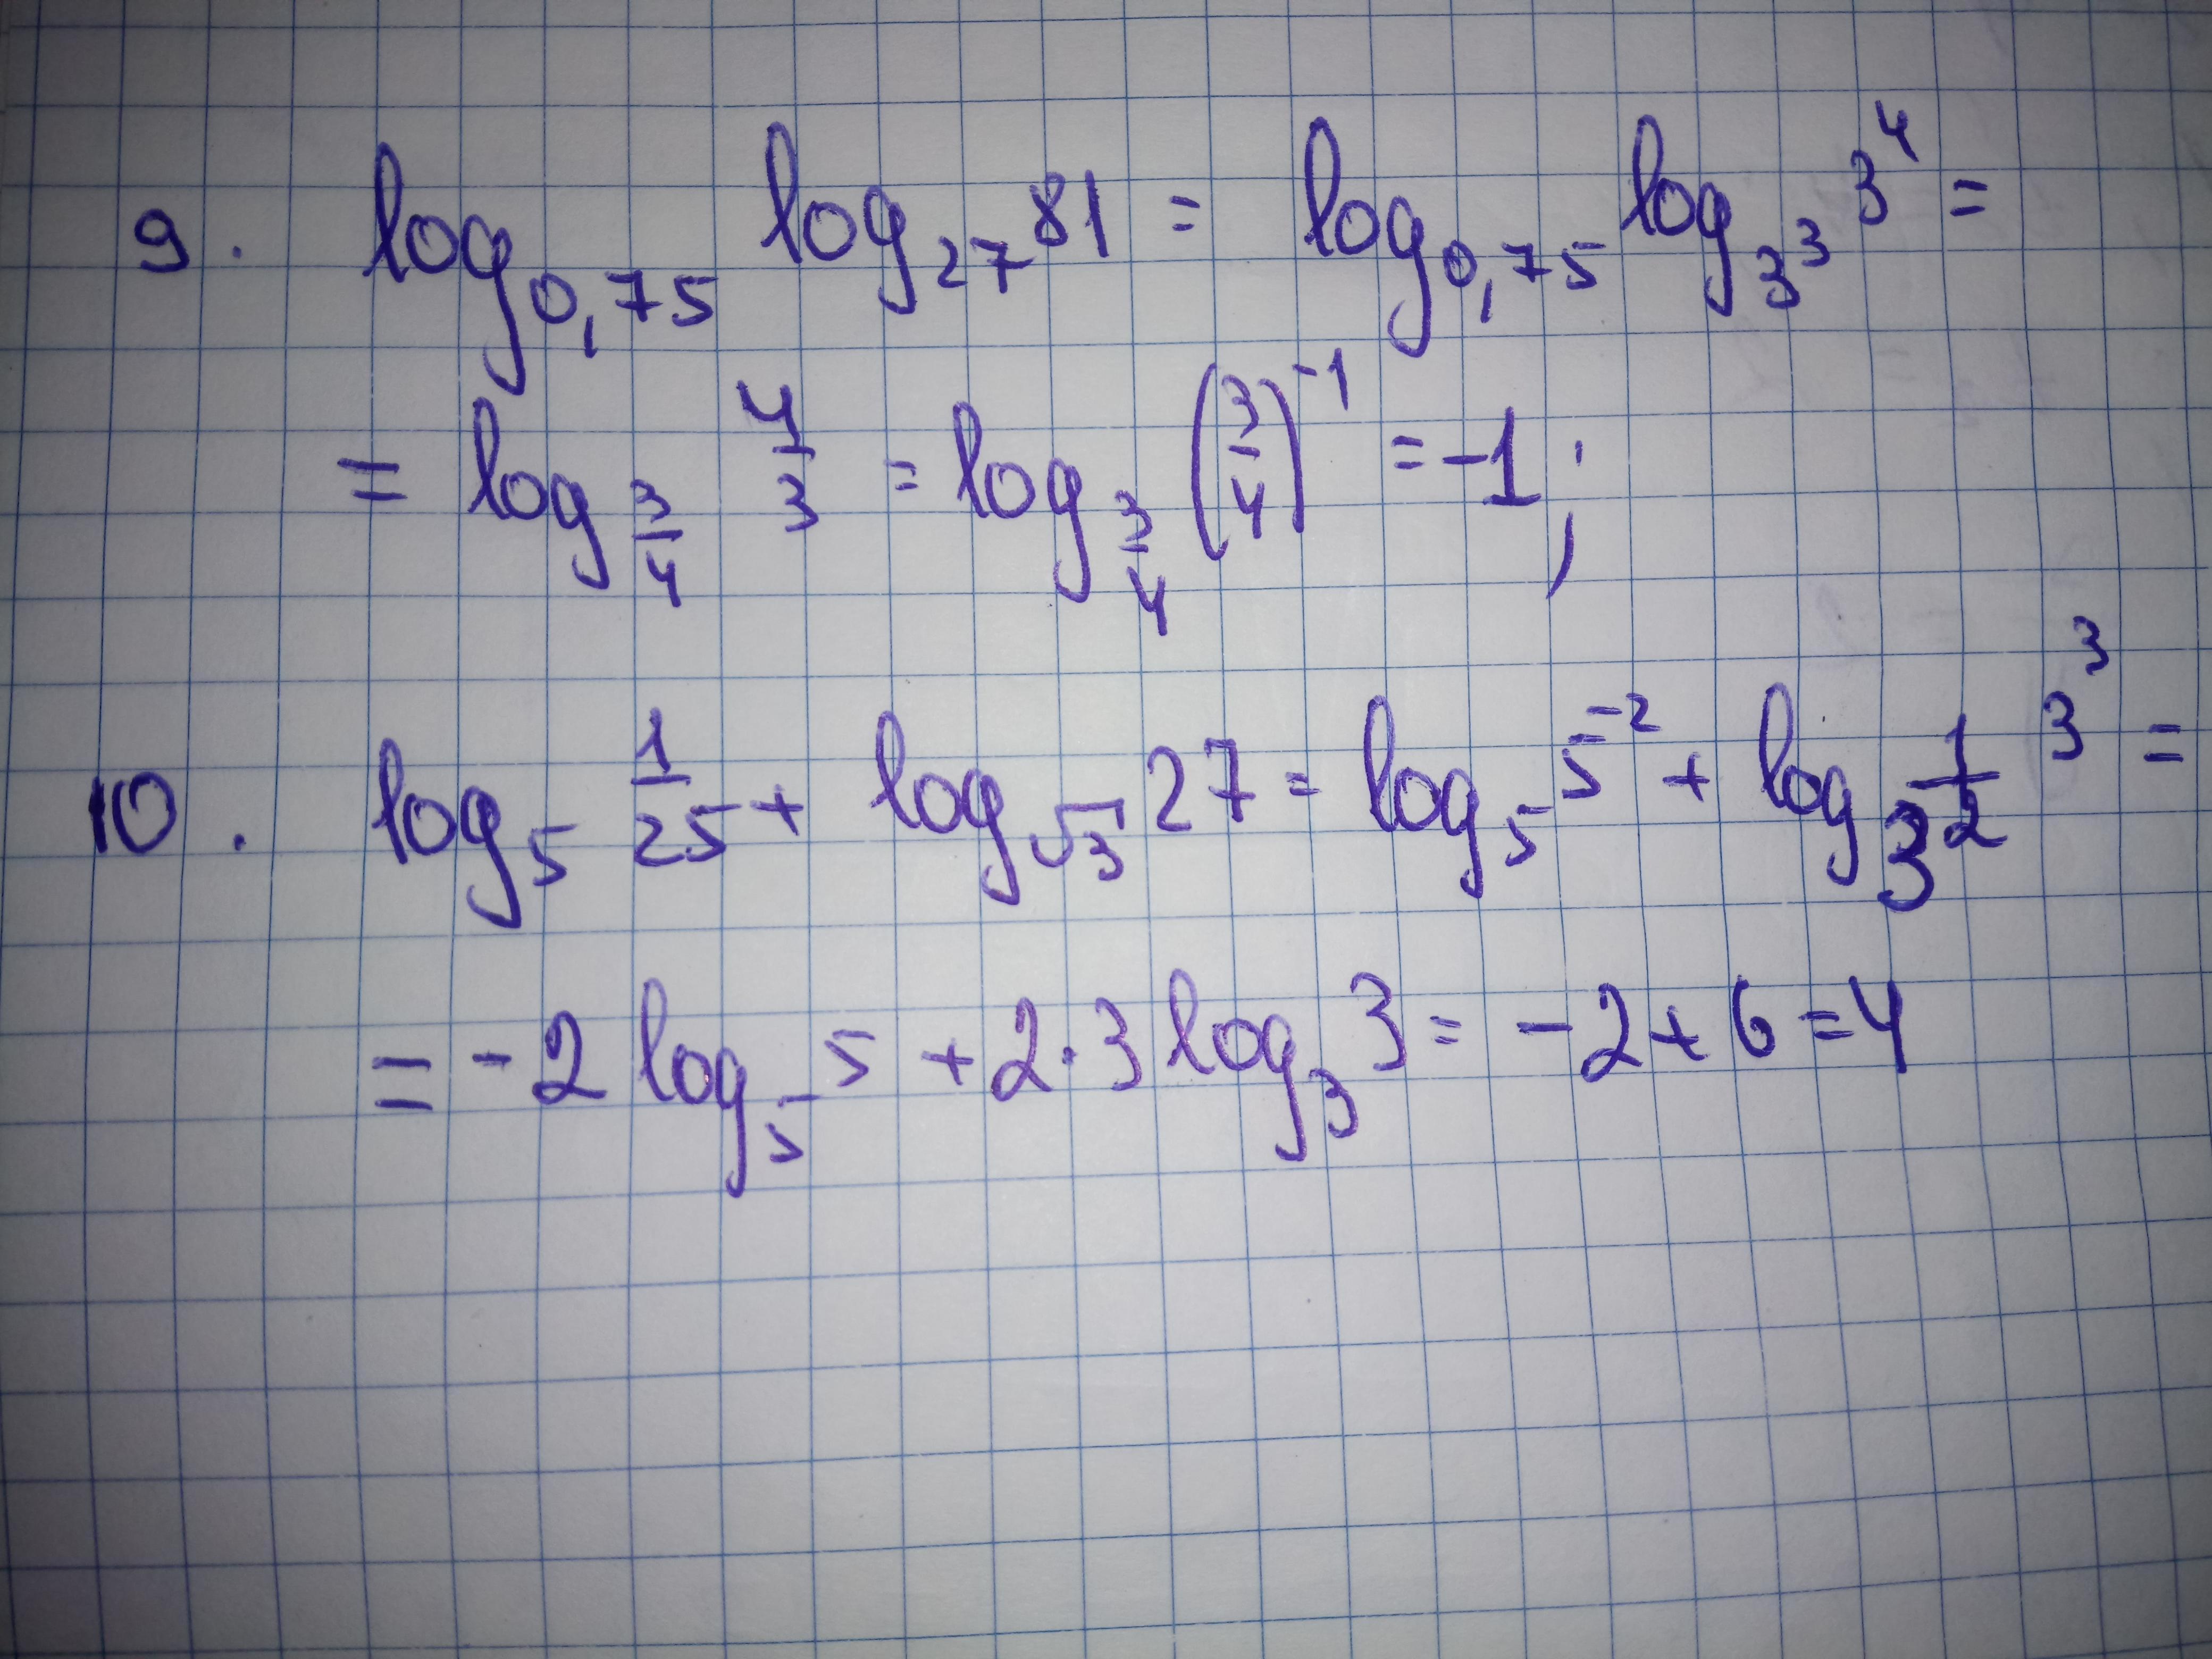 9. log₀,₇₅ log₂₇ 81 = log₀,₇₅ log_{3³} 3⁴ =
= log_{3/4} 4/3 = log_{3/4} (3/4)⁻¹ = -1;
10. log₅ 1/25 + log_{√3} 27 = log₅ 5⁻² + log_{3^{1/2}} 3³ =
= -2 log₅ 5 + 2·3 log₃ 3 = -2 + 6 = 4